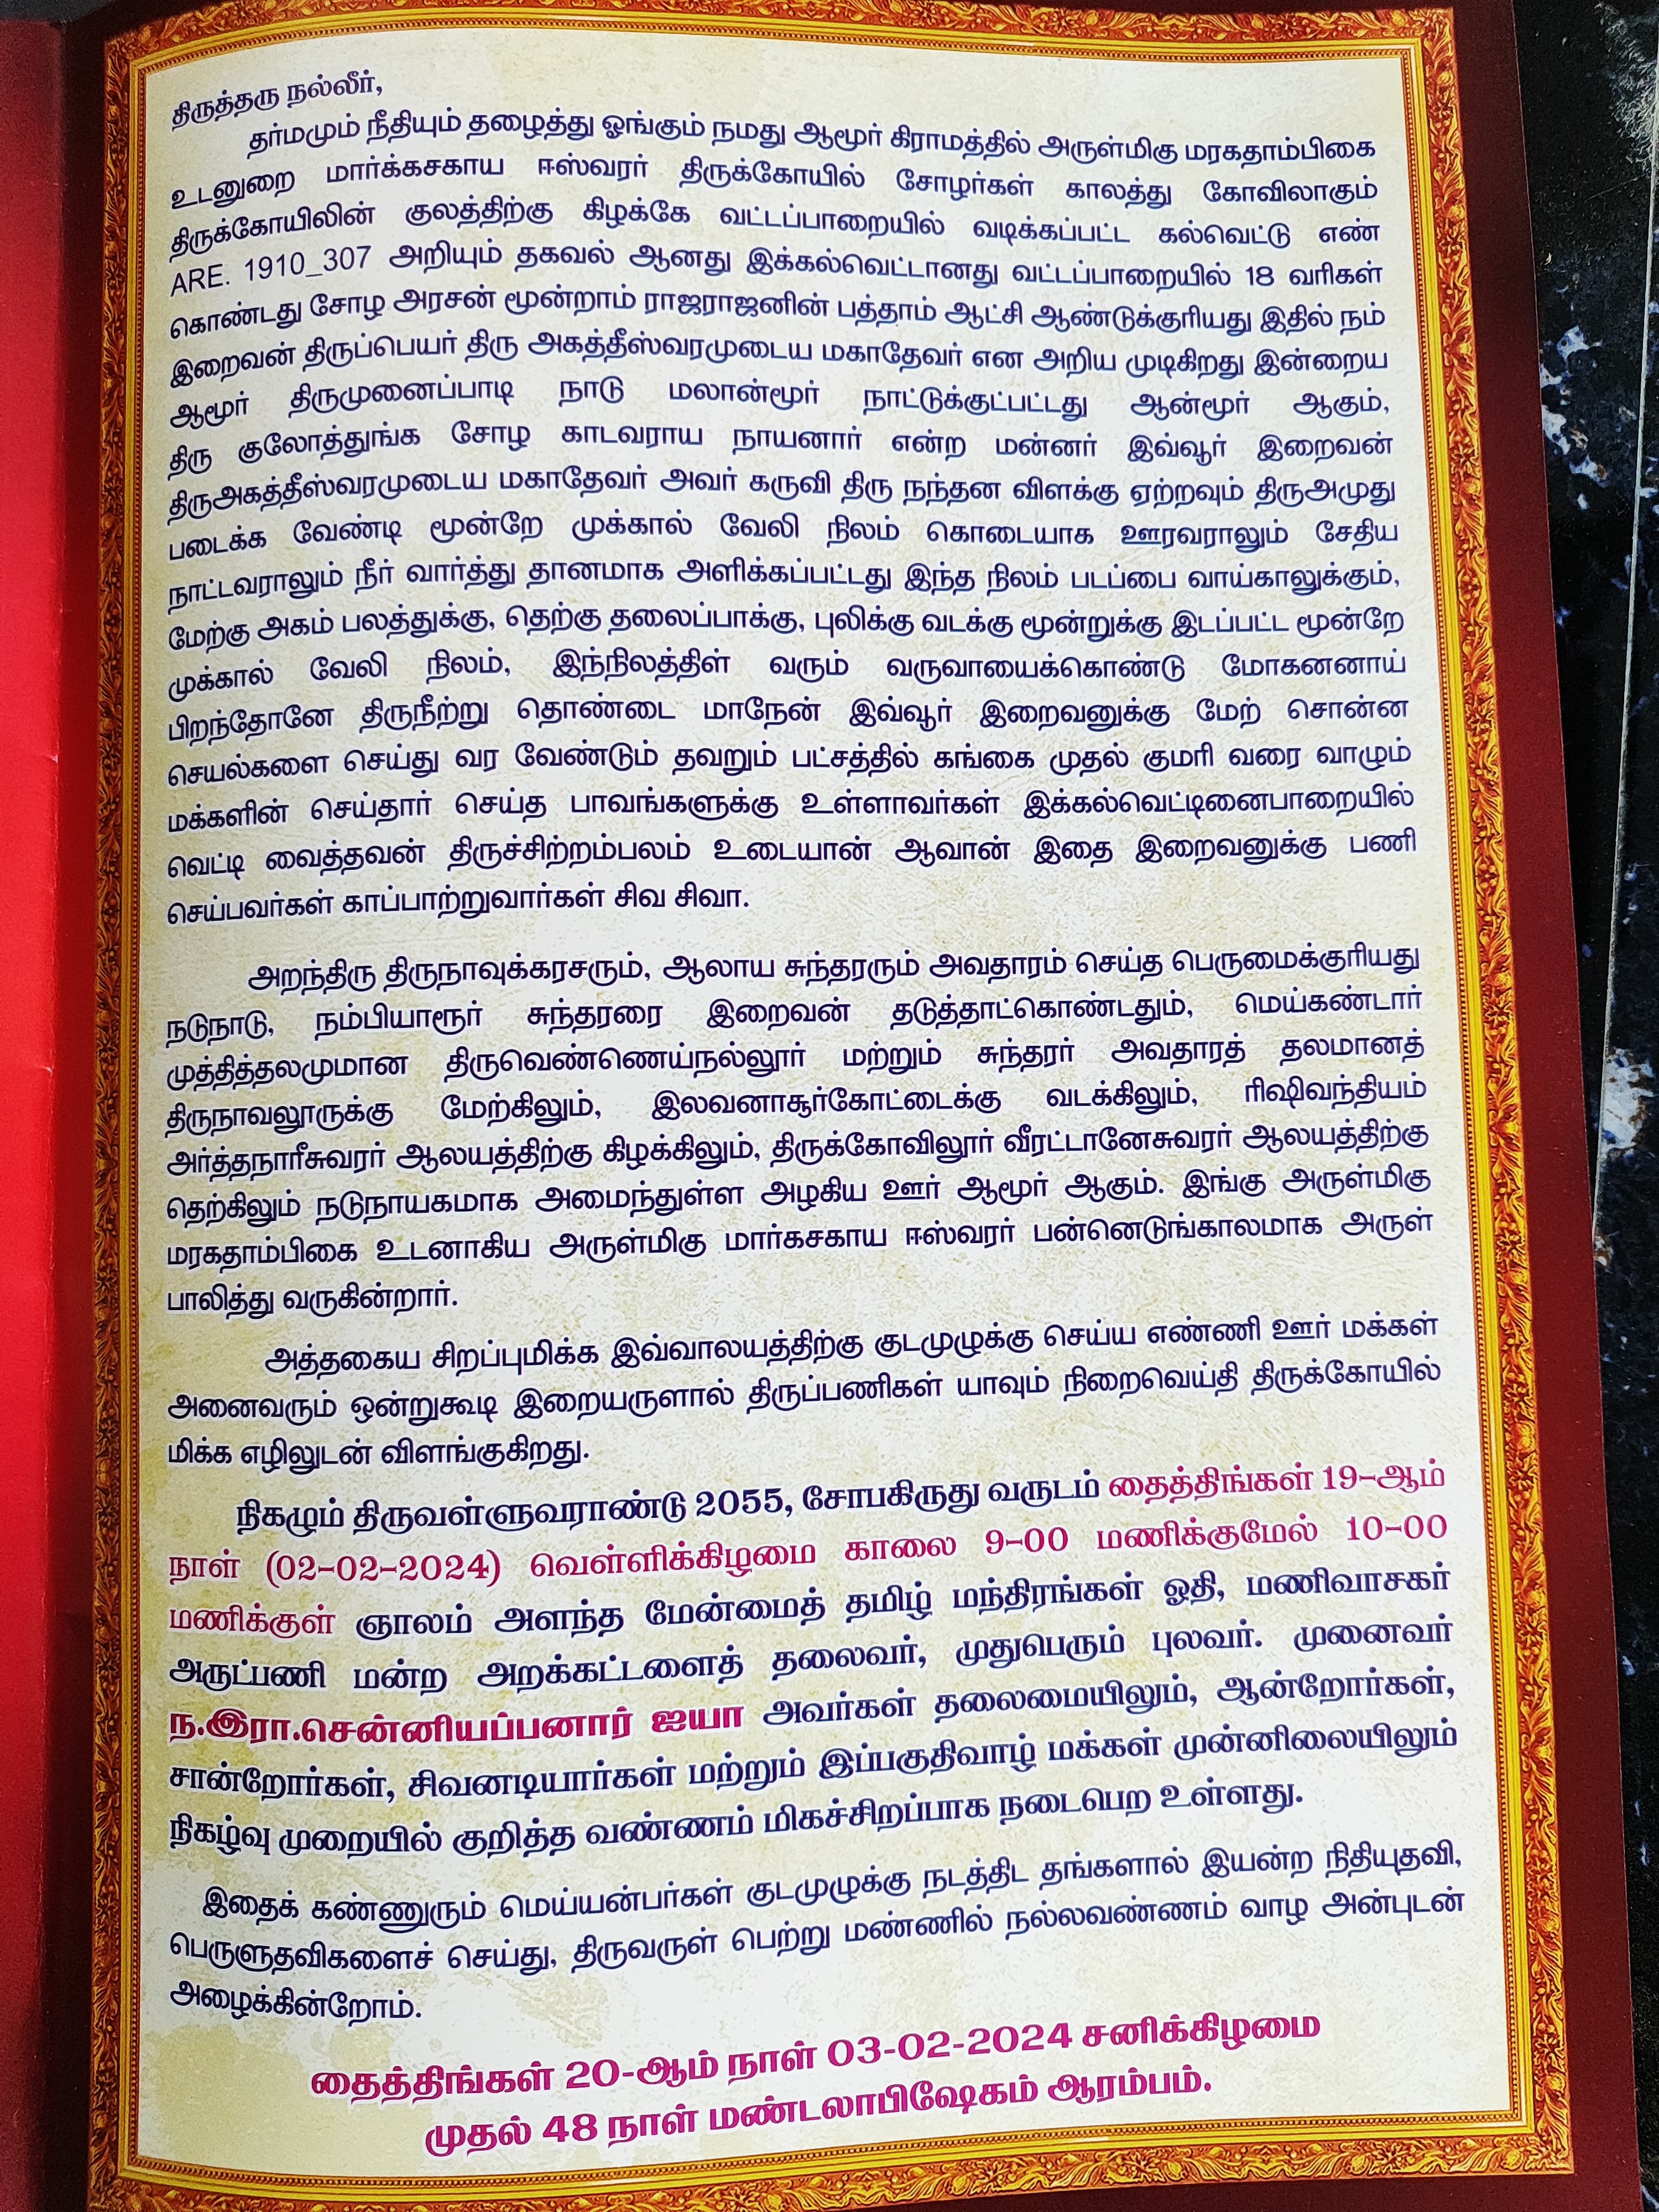 திருத்தரு நல்லீர்,
தர்மமும் நீதியும் தழைத்து ஓங்கும் நமது ஆமூர் கிராமத்தில் அருள்மிகு மரகதாம்பிகை
உடனுறை மார்க்கசகாய ஈஸ்வரர் திருக்கோயில் சோழர்கள் காலத்து கோவிலாகும்
திருக்கோயிலின் குலத்திற்கு கிழக்கே வட்டப்பாறையில் வடிக்கப்பட்ட கல்வெட்டு எண்
ARE. 1910_307 அறியும் தகவல் ஆனது இக்கல்வெட்டானது வட்டப்பாறையில் 18 வரிகள்
கொண்டது சோழ அரசன் மூன்றாம் ராஜராஜனின் பத்தாம் ஆட்சி ஆண்டுக்குரியது இதில் நம்
இறைவன் திருப்பெயர் திரு அகத்தீஸ்வரமுடைய மகாதேவர் என அறிய முடிகிறது இன்றைய
ஆமூர் திருமுனைப்பாடி நாடு மலான்மூர் நாட்டுக்குட்பட்டது ஆன்மூர் ஆகும்,
திரு குலோத்துங்க சோழ காடவராய நாயனார் என்ற மன்னர் இவ்வூர் இறைவன்
திருஅகத்தீஸ்வரமுடைய மகாதேவர் அவர் கருவி திரு நந்தன விளக்கு ஏற்றவும் திருஅமுது
படைக்க வேண்டி மூன்றே முக்கால் வேலி நிலம் கொடையாக ஊரவராலும் சேதிய
நாட்டவராலும் நீர் வார்த்து தானமாக அளிக்கப்பட்டது இந்த நிலம் படப்பை வாய்காலுக்கும்,
மேற்கு அகம் பலத்துக்கு, தெற்கு தலைப்பாக்கு, புலிக்கு வடக்கு மூன்றுக்கு இடப்பட்ட மூன்றே
முக்கால் வேலி நிலம், இந்நிலத்திள் வரும் வருவாயைக்கொண்டு மோகனனாய்
பிறந்தோனே திருநீற்று தொண்டை மாநேன் இவ்வூர் இறைவனுக்கு மேற் சொன்ன
செயல்களை செய்து வர வேண்டும் தவறும் பட்சத்தில் கங்கை முதல் குமரி வரை வாழும்
மக்களின் செய்தார் செய்த பாவங்களுக்கு உள்ளாவர்கள் இக்கல்வெட்டினைபாறையில்
வெட்டி வைத்தவன் திருச்சிற்றம்பலம் உடையான் ஆவான் இதை இறைவனுக்கு பணி
செய்பவர்கள் காப்பாற்றுவார்கள் சிவ சிவா.
அறந்திரு திருநாவுக்கரசரும், ஆலாய சுந்தரரும் அவதாரம் செய்த பெருமைக்குரியது
நடுநாடு, நம்பியாரூர் சுந்தரரை இறைவன் தடுத்தாட்கொண்டதும், மெய்கண்டார்
முத்தித்தலமுமான திருவெண்ணெய்நல்லூர் மற்றும் சுந்தரர் அவதாரத் தலமானத்
திருநாவலூருக்கு மேற்கிலும், இலவனாசூர்கோட்டைக்கு வடக்கிலும், ரிஷிவந்தியம்
அர்த்தநாரீசுவரர் ஆலயத்திற்கு கிழக்கிலும், திருக்கோவிலூர் வீரட்டானேசுவரர் ஆலயத்திற்கு
தெற்கிலும் நடுநாயகமாக அமைந்துள்ள அழகிய ஊர் ஆமூர் ஆகும். இங்கு அருள்மிகு
மரகதாம்பிகை உடனாகிய அருள்மிகு மார்கசகாய ஈஸ்வரர் பன்னெடுங்காலமாக அருள்
பாலித்து வருகின்றார்.
அத்தகைய சிறப்புமிக்க இவ்வாலயத்திற்கு குடமுழுக்கு செய்ய எண்ணி ஊர் மக்கள்
அனைவரும் ஒன்றுகூடி இறையருளால் திருப்பணிகள் யாவும் நிறைவெய்தி திருக்கோயில்
மிக்க எழிலுடன் விளங்குகிறது.
நிகழும் திருவள்ளுவராண்டு 2055, சோபகிருது வருடம் தைத்திங்கள் 19-ஆம்
நாள் (02-02-2024) வெள்ளிக்கிழமை காலை 9-00 மணிக்குமேல் 10-00
மணிக்குள் ஞாலம் அளந்த மேன்மைத் தமிழ் மந்திரங்கள் ஓதி, மணிவாசகர்
அருட்பணி மன்ற அறக்கட்டளைத் தலைவர், முதுபெரும் புலவர். முனைவர்
ந.இரா.சென்னியப்பனார் ஐயா அவர்கள் தலைமையிலும், ஆன்றோர்கள்,
சான்றோர்கள், சிவனடியார்கள் மற்றும் இப்பகுதிவாழ் மக்கள் முன்னிலையிலும்
நிகழ்வு முறையில் குறித்த வண்ணம் மிகச்சிறப்பாக நடைபெற உள்ளது.
இதைக் கண்ணுரும் மெய்யன்பர்கள் குடமுழுக்கு நடத்திட தங்களால் இயன்ற நிதியுதவி,
பெருளுதவிகளைச் செய்து, திருவருள் பெற்று மண்ணில் நல்லவண்ணம் வாழ அன்புடன்
அழைக்கின்றோம்.
தைத்திங்கள் 20-ஆம் நாள் 03-02-2024 சனிக்கிழமை
முதல் 48 நாள் மண்டலாபிஷேகம் ஆரம்பம்.